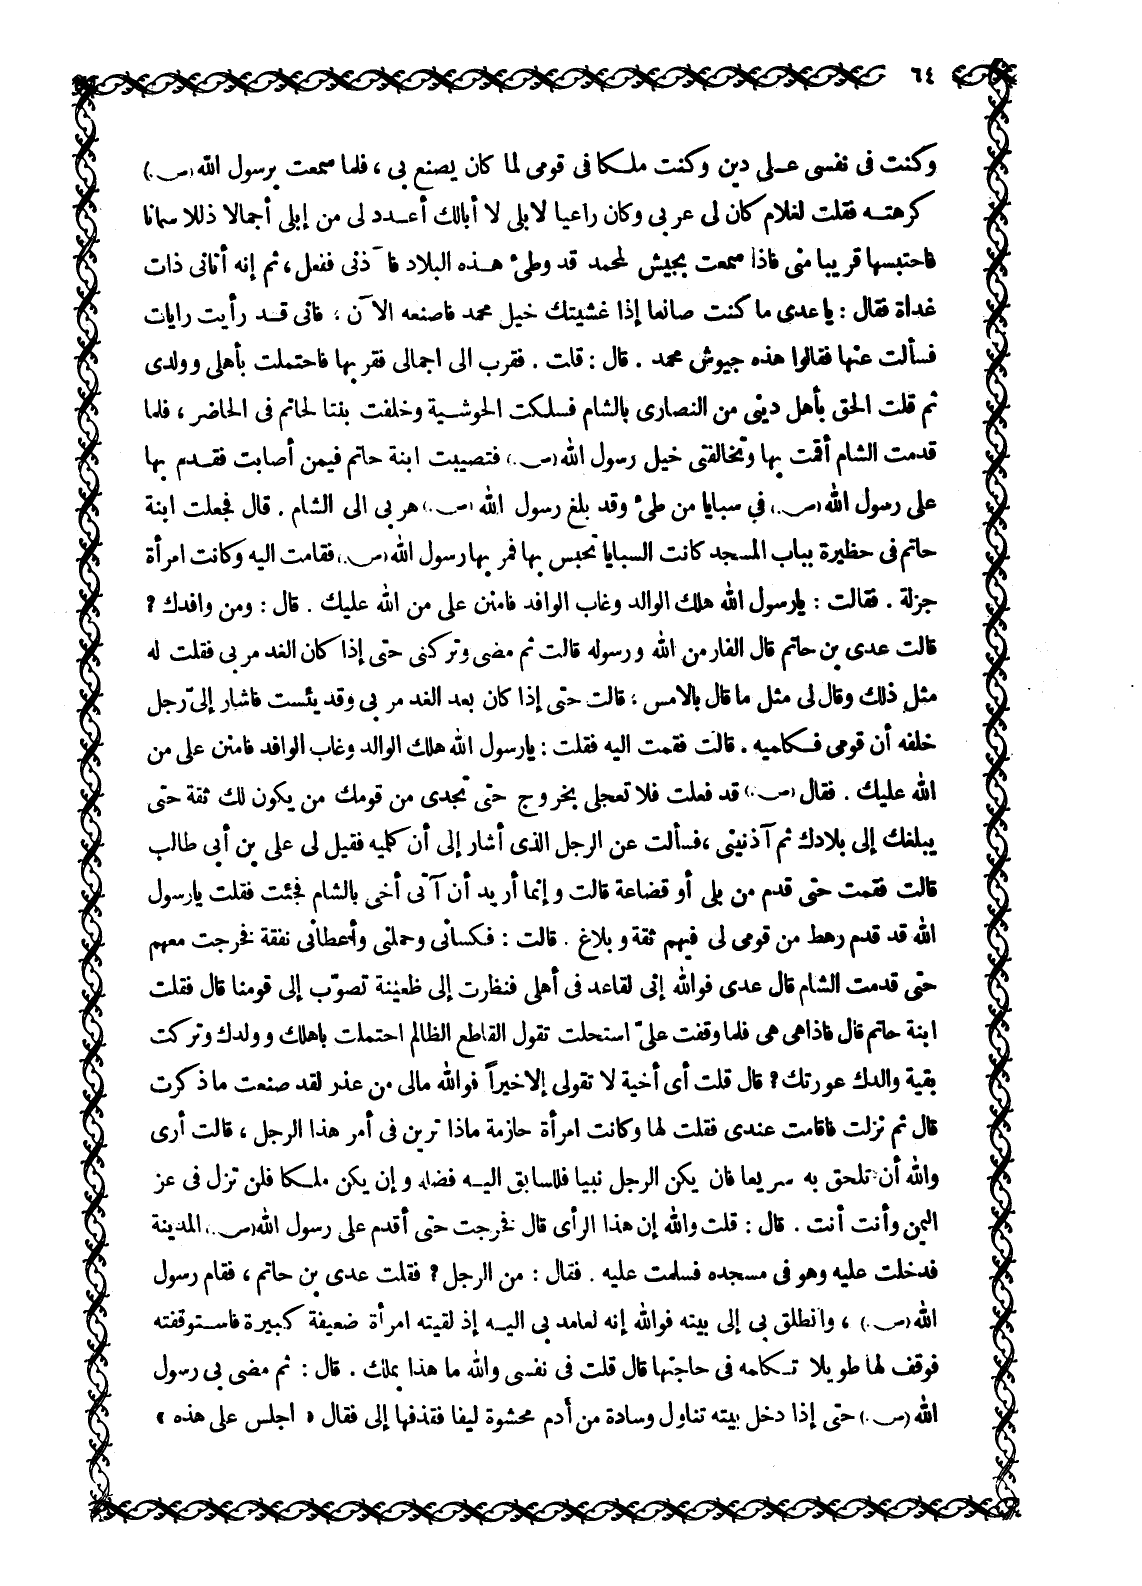 ٦٤
وكنت فى نفسى عـلى دين وكنت ملـكا فى قومى لما كان يصنع بى ، فلما سمعت برسول الله (ص)
كرهتـه فقلت لغلام كان لى عربى وكان راعيا لابلى لا أبالك أعـدد لى من إبلى أجمالا ذللا سمانا
فاحتبسها قريبا منى فاذا سمعت بجيش لمحمد قد وطئ هـذه البلاد فآذنى ففعل ، ثم إنه أتانى ذات
غداة فقال : ياعدى ما كنت صانعا إذا غشيتك خيل محمد فاصنعه الآن ، فانى قـد رأيت رايات
فسألت عنها فقالوا هذه جيوش محمد . قال : قلت . فقرب الى اجمالى فقربها فاحتملت بأهلى وولدى
ثم قلت الحق بأهل دينى من النصارى بالشام فسلكت الحوشـية وخلفت بنتا لحاتم فى الحاضر ، فلما
قدمت الشام أقمت بها وتخالفنى خيل رسول الله (ص) فتصيبت ابنة حاتم فيمن أصابت فقـدم بها
على رسول الله (ص) في سبايا من طئ وقد بلغ رسول الله (ص) هربى الى الشام . قال فجعلت ابنة
حاتم فى حظيرة بباب المسجد كانت السبايا تحبس بها فمر بها رسول الله (ص) فقامت اليه وكانت امرأة
جزلة . فقالت : يارسول الله هلك الوالد وغاب الوافد فامنن على من الله عليك . قال : ومن وافدك ؟
قالت عدى بن حاتم قال الفار من الله ورسوله قالت ثم مضى وتركنى حتى إذا كان الغد مر بى فقلت له
مثل ذلك وقال لى مثل ما قال بالامس ، قالت حتى إذا كان بعد الغد مر بى وقد يئست فاشار إلىّ رجل
خلفه أن قومى فـكلميه . قالت فقمت اليه فقلت : يارسول الله هلك الوالد وغاب الوافد فامنن على من
الله عليك . فقال (ص) قد فعلت فلا تعجلى بخروج حتى تجدى من قومك من يكون لك ثقة حتى
يبلغك إلى بلادك ثم آذنينى ، فسألت عن الرجل الذى أشار إلى أن كلميه فقيل لى على بن أبى طالب
قالت فقمت حتى قدم من بلى أو قضاعة قالت وإنما أريد أن آتى أخى بالشام فجئت فقلت يارسول
الله قد قدم رهط من قومى لى فيهم ثقة وبلاغ . قالت : فـكسانى وحملنى وأعطانى نفقة فخرجت معهم
حتى قدمت الشام قال عدى فوالله إنى لقاعد فى أهلى فنظرت إلى ظعينة تصوّب إلى قومنا قال فقلت
ابنة حاتم قال فاذا هى هى فلما وقفت علىّ استحلت تقول القاطع الظالم احتملت باهلك وولدك وتركت
بقية والدك عورتك ؟ قال قلت أى أخية لا تقولى إلا خيراً فوالله مالى من عذر لقد صنعت ما ذكرت
قال ثم نزلت فاقامت عندى فقلت لها وكانت امرأة حازمة ماذا ترين فى أمر هذا الرجل ، قالت أرى
والله أن تلحق به سريعا فان يكن الرجل نبيا فللسابق اليـه فضله وإن يكن ملـكا فلن تزل فى عز
اليمن وأنت أنت . قال : قلت والله إن هذا الرأى قال فخرجت حتى أقدم على رسول الله (ص) المدينة
فدخلت عليه وهو فى مسجده فسلمت عليه . فقال : من الرجل ؟ فقلت عدى بن حاتم ، فقام رسول
الله (ص) ، وانطلق بى إلى بيته فوالله إنه لعامد بى اليـه إذ لقيته امرأة ضعيفة كبيرة فاستوقفته
فوقف لها طويلا تـكلمه فى حاجتها قال قلت فى نفسى والله ما هذا بملك . قال : ثم مضى بى رسول
الله (ص) حتى إذا دخل بيته تناول وسادة من أدم محشوة ليفا فقذفها إلى فقال « اجلس على هذه »